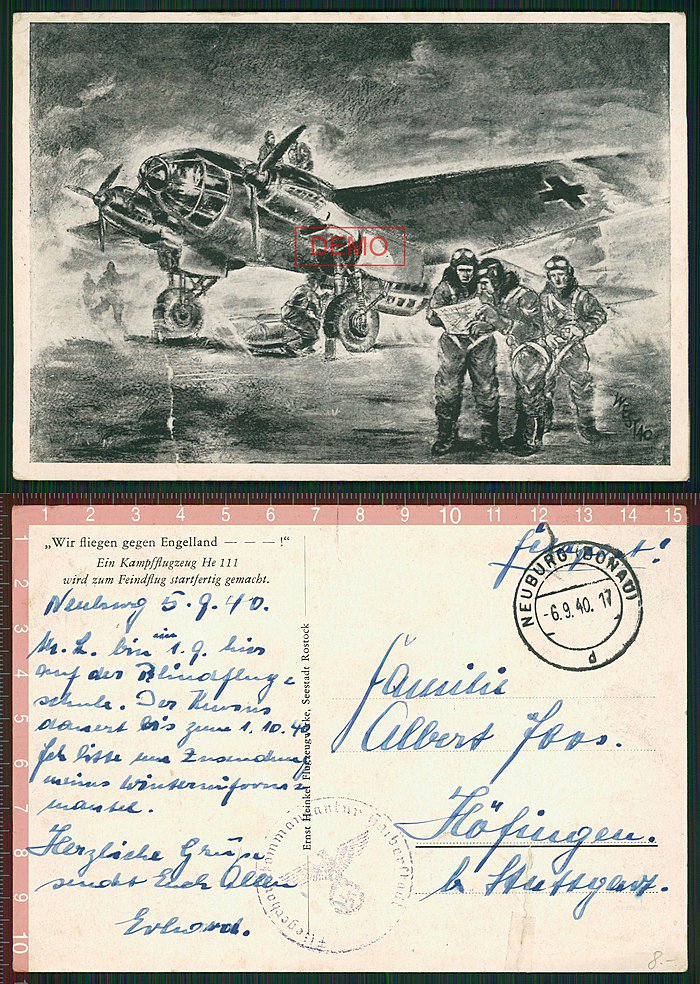 DEMO
WEST/40
1 2 3 4 5 6 7 8 9 10 11 12 13 14 15
„Wir fliegen gegen Engelland — — — !“
Ein Kampfflugzeug He 111
wird zum Feindflug startfertig gemacht.
Neuburg 5.9.40.
M. L. bin nun 1.9. hier
auf der Blindflug=
schule. Der Kursus
dauert bis zum 1.10.40
Ich bitte um Zusendung
meines Winteruniform=
mantel.
Herzliche Grüße
sendet Euch Allen
Erhard.
Ernst Heinkel Flugzeugwerke, Seestadt Rostock
Feldpost!
NEUBURG (DONAU)
-6.9.40.17
d
Familie
Albert Joos.
Höfingen.
b Stuttgart.
Fliegerhorstkommandantur
8.-
1
2
3
4
5
6
7
8
9
10